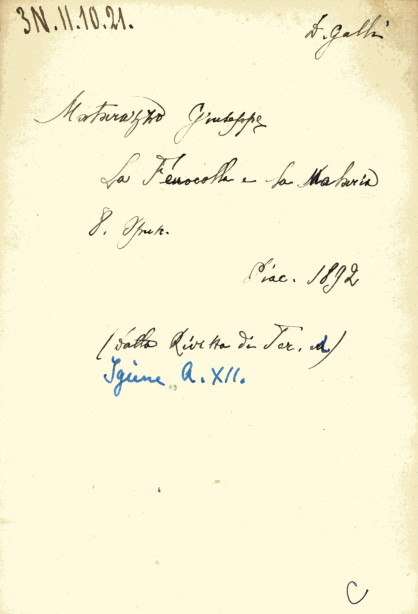 3N.11.10.21.
D. Galli
Matarazzo Giuseppe
La Fenocolla e la Malaria
8.
Piac. 1892
(dalla Rivista di Ter. ed)
Igiene A. XII.
C